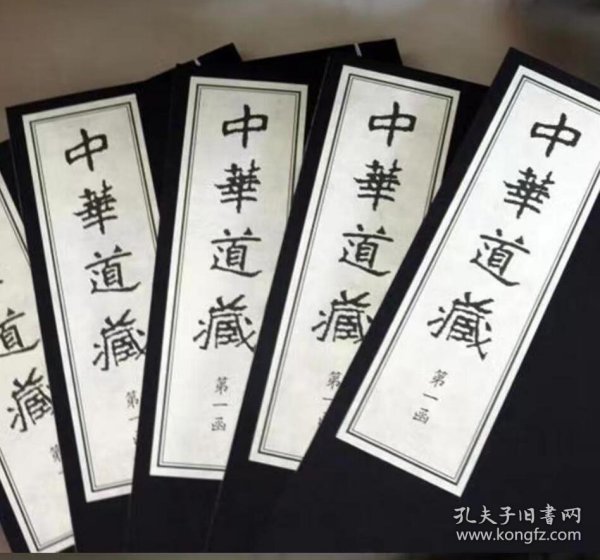 道藏
第
中華道藏
第一函
中華道藏
第一函
中華道藏
第一函
中華道藏
第一函
孔夫子旧書网
www.kongfz.com